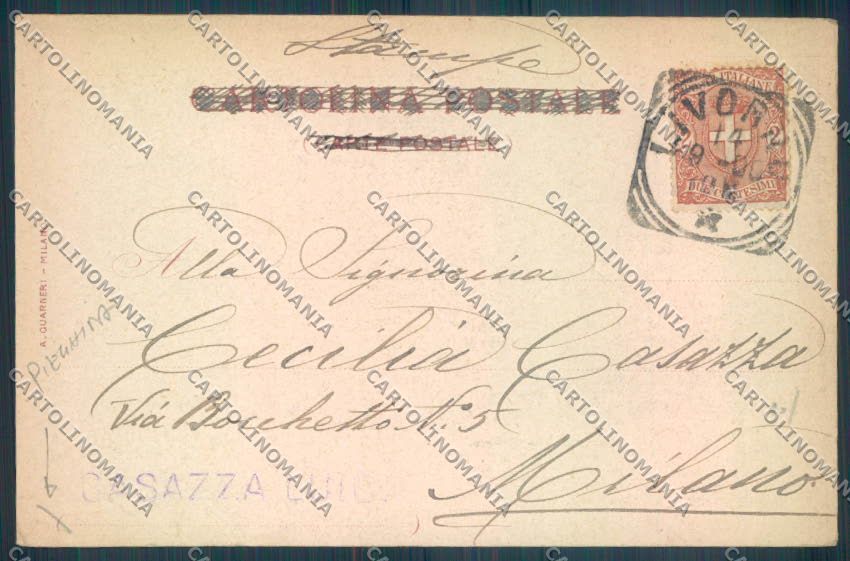 Stampe
CARTOLINA POSTALE
CARTE POSTALE
POSTE ITALIANE
LIVORNO
14
DUE CENTESIMI
A. GUARNERI - MILANO
Alla Signorina
Cecilia Casazza
Via Boschetto N. 5
Milano
PIEGHINA
CASAZZA LUIGI
CARTOLINOMANIA